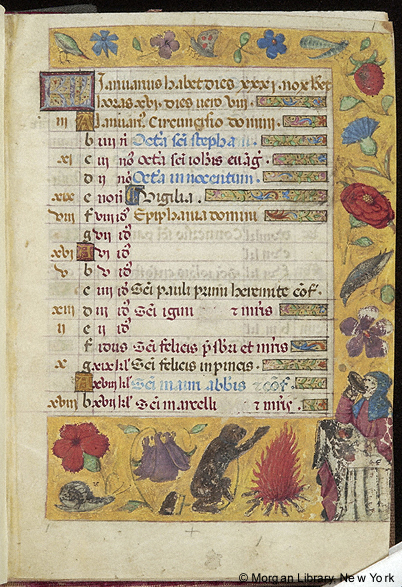 Januarius habet dies xxxi. nox habet
horas xvi. dies uero viii.
iii A Januarii. Circuncisio domini.
b iiii nͦ Octa sci stephani
xi c iii nͦ Octa sci iohis euāg.
d ii nͦ Octa innocentum.
xix e noñ Vigilia.
viii f viii idͦ Epiphania domini
g vii idͦ
xvi A vi idͦ
v b v idͦ
c iiii idͦ Sci pauli primi heremite cōf.
xiii d iii idͦ Sci igini et mr̄is
ii e ii idͦ
f idus Sci felicis p̄sbri et mr̄is
x g xix kl̄ Sci felicis in pincis.
A xviii kl̄ Sci mauri abbis et cōf.
xviii b xvii kl̄ Sci marcelli et mr̄is
© Morgan Library, New York